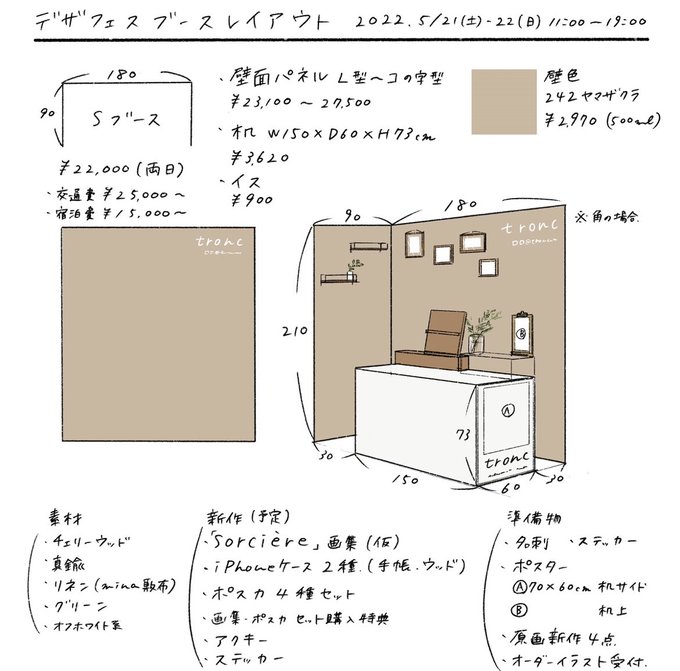 デザフェスブースレイアウト 2022.5/21(土)・22(日) 11:00〜19:00
180
90
Sブース
¥22,000(両日)
・交通費¥25,000〜
・宿泊費¥15,000〜
・壁面パネル L型〜コの字型
¥23,100〜27,500
・机 W150×D60×H73cm
¥3,620
・イス
¥900
壁色
242ヤマザクラ
¥2,970(500ml)
tronc
90
180
※角の場合
tronc
210
B
A
73
tronc
30
150
60
30
素材
・チェリーウッド
・真鍮
・リネン(mina敷布)
・グリーン
・オフホワイト系
新作(予定)
・「Sorcière」画集(仮)
・iPhoneケース2種.(手帳.ウッド)
・ポスカ4種セット
・画集・ポスカセット購入特典
・アクキー
・ステッカー
準備物
・名刺 ・ステッカー
・ポスター
Ⓐ70×60cm 机サイド
Ⓑ 机上
・原画新作4点
・オーダーイラスト受付.